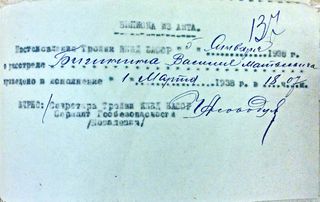 137
ВЫПИСКА ИЗ АКТА.
Постановление Тройки НКВД БАССР " Января 1938 г.
расстреле Василия Матвеевича
приведено в исполнение " 1 " Марта 1938 г. в 18.07
ВЕРНО: /Секретарь Тройки НКВД БАССР
Сержант Госбезопасности